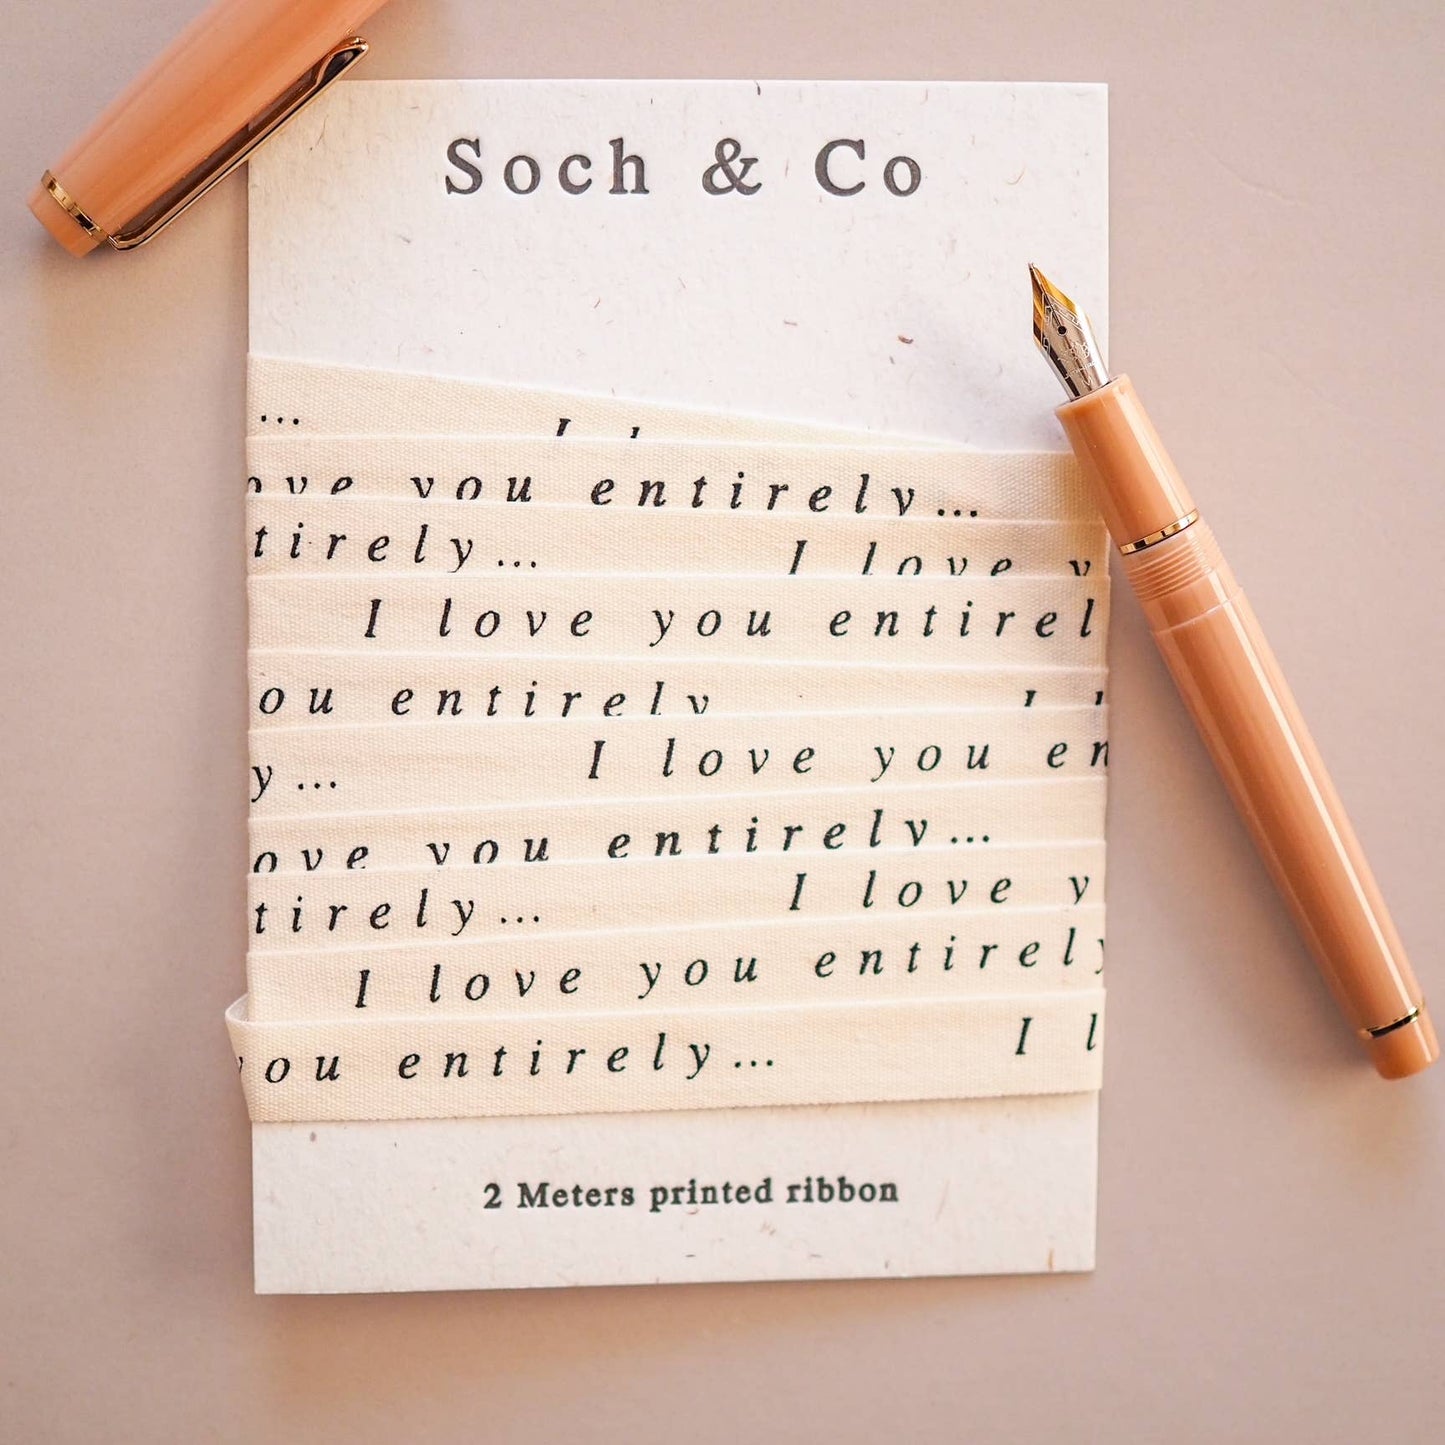 Soch & Co
...
ove you entirely...
tirely... I love y
I love you entirel
ou entirely
y... I love you en
ove you entirely...
tirely... I love y
I love you entirely
you entirely... I l
2 Meters printed ribbon